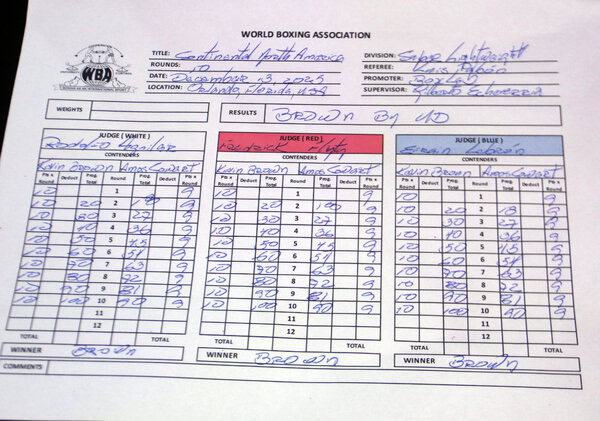 WORLD BOXING ASSOCIATION
WBA
TITLE: Continental North America
DIVISION: Super Lightweight
ROUNDS: 10
REFEREE: Luis Pabón
DATE: December 13, 2025
PROMOTER: Boxlab
LOCATION: Orlando, Florida, USA
SUPERVISOR:
WEIGHTS
RESULTS BROWN By UD
JUDGE ( WHITE ) JUDGE ( RED ) JUDGE ( BLUE )
Rodolfo Aguilar Efrain Lebrón
CONTENDERS CONTENDERS CONTENDERS
Kevin Brown Amos Cowart Kevin Brown Amos Cowart Kevin Brown Amos Cowart
Pts x Round Deduct Prog. Total Round Prog. Total Deduct Pts x Round Pts x Round Deduct Prog. Total Round Prog. Total Deduct Pts x Round Pts x Round Deduct Prog. Total Round Prog. Total Deduct Pts x Round
10 1 9 10 1 9 10 1 9
10 20 2 9 10 20 2 9 10 20 2 18 9
10 30 3 27 9 10 30 3 27 9 10 30 3 27 9
10 40 4 36 9 10 40 4 36 9 10 40 4 36 9
10 50 5 45 9 10 50 5 45 9 10 50 5 45 9
10 60 6 54 9 10 60 6 54 9 10 60 6 54 9
10 70 7 63 9 10 70 7 63 9 10 70 7 63 9
10 80 8 72 9 10 80 8 72 9 10 80 8 72 9
10 90 9 81 9 10 90 9 81 9 10 90 9 81 9
10 100 10 90 9 10 100 10 90 9 10 100 10 90 9
11 11 11
12 12 12
TOTAL TOTAL TOTAL TOTAL TOTAL TOTAL
WINNER BROWN WINNER BROWN WINNER BROWN
COMMENTS